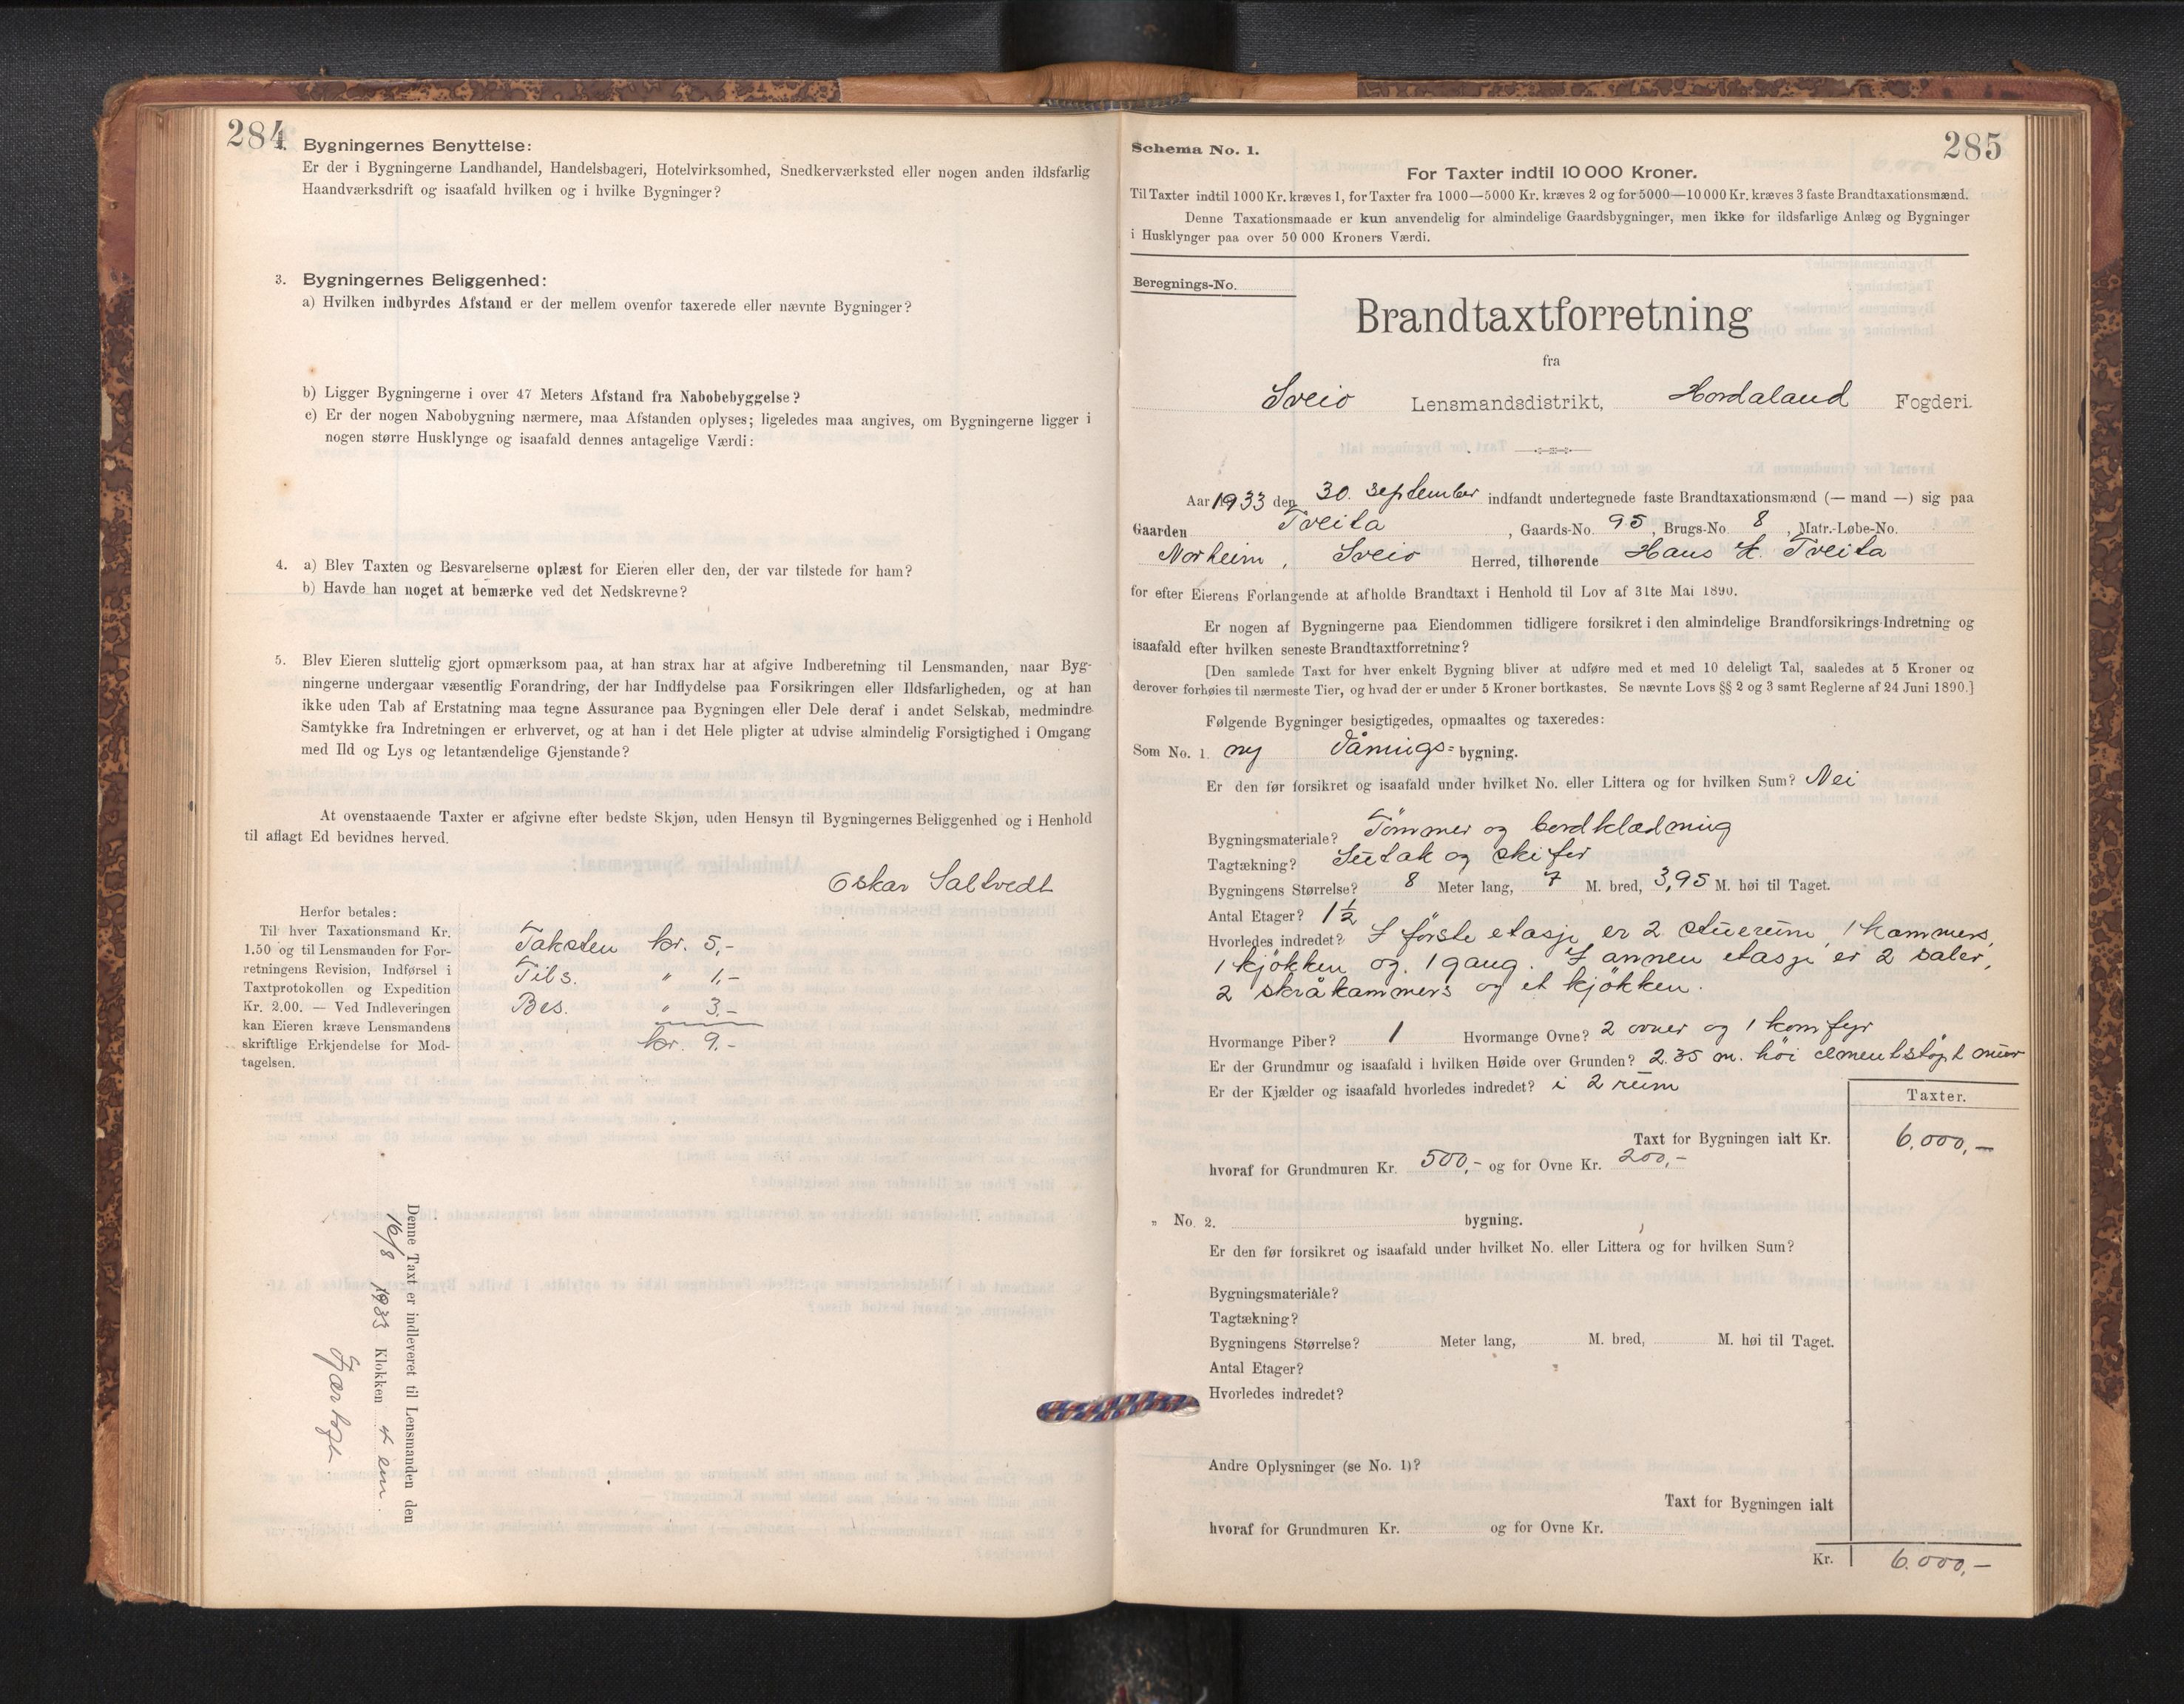 284
Bygningernes Benyttelse:
Er der i Bygningerne Landhandel, Handelsbageri, Hotelvirksomhed, Snedkerværksted eller nogen anden ildsfarlig
Haandværksdrift og isaafald hvilken og i hvilke Bygninger?
3. Bygningernes Beliggenhed:
a) Hvilken indbyrdes Afstand er der mellem ovenfor taxerede eller nævnte Bygninger?
b) Ligger Bygningerne i over 47 Meters Afstand fra Nabobebyggelse?
c) Er der nogen Nabobygning nærmere, maa Afstanden oplyses; ligeledes maa angives, om Bygningerne ligger i
nogen større Husklynge og isaafald dennes antagelige Værdi:
4. a) Blev Taxten og Besvarelserne oplæst for Eieren eller den, der var tilstede for ham?
b) Havde han noget at bemærke ved det Nedskrevne?
5. Blev Eieren sluttelig gjort opmærksom paa, at han strax har at afgive Indberetning til Lensmanden, naar Byg-
ningerne undergaar væsentlig Forandring, der har Indflydelse paa Forsikringen eller Ildsfarligheden, og at han
ikke uden Tab af Erstatning maa tegne Assurance paa Bygningen eller Dele deraf i andet Selskab, medmindre
Samtykke fra Indretningen er erhvervet, og at han i det Hele pligter at udvise almindelig Forsigtighed i Omgang
med Ild og Lys og letantændelige Gjenstande?
At ovenstaaende Taxter er afgivne efter bedste Skjøn, uden Hensyn til Bygningernes Beliggenhed og i Henhold
til aflagt Ed bevidnes herved.
Oskar Saltvedt
Herfor betales:
Til hver Taxationsmand Kr.
1.50 og til Lensmanden for For-
retningens Revision, Indførsel i
Taxtprotokollen og Expedition
Kr. 2.00. — Ved Indleveringen
kan Eieren kræve Lensmandens
skriftlige Erkjendelse for Mod-
tagelsen.
Taksten kr. 5,-
Tils. " 1,-
Bes. " 3,-
kr. 9,-
Denne Taxt er indleveret til Lensmanden den
16/8 1933 Klokken 4 em.
285
Schema No. 1.
For Taxter indtil 10 000 Kroner.
Til Taxter indtil 1000 Kr. kræves 1, for Taxter fra 1000—5000 Kr. kræves 2 og for 5000—10 000 Kr. kræves 3 faste Brandtaxationsmænd.
Denne Taxationsmaade er kun anvendelig for almindelige Gaardsbygninger, men ikke for ildsfarlige Anlæg og Bygninger
i Husklynger paa over 50 000 Kroners Værdi.
Beregnings-No.
Brandtaxtforretning
fra
Sveio Lensmandsdistrikt, Hordaland Fogderi.
Aar 1933 den 30. september indfandt undertegnede faste Brandtaxationsmænd (— mand —) sig paa
Gaarden Tveita, Gaards-No. 95, Brugs-No 8, Matr.-Løbe-No.
Norheim, Sveio Herred, tilhørende Hans H. Tveita
for efter Eierens Forlangende at afholde Brandtaxt i Henhold til Lov af 31te Mai 1890.
Er nogen af Bygningerne paa Eiendommen tidligere forsikret i den almindelige Brandforsikrings-Indretning og
isaafald efter hvilken seneste Brandtaxtforretning?
[Den samlede Taxt for hver enkelt Bygning bliver at udføre med et med 10 deleligt Tal, saaledes at 5 Kroner og
derover forhøies til nærmeste Tier, og hvad der er under 5 Kroner bortkastes. Se nævnte Lovs §§ 2 og 3 samt Reglerne af 24 Juni 1890.]
Følgende Bygninger besigtigedes, opmaaltes og taxeredes:
Som No. 1. ny Vånings= bygning.
Er den før forsikret og isaafald under hvilket No. eller Littera og for hvilken Sum? Nei
Bygningsmateriale? Tømmer og bordklædning
Tagtækning? Sutak og skifer
Bygningens Størrelse? 8 Meter lang, 7 M. bred, 3,95 M. høi til Taget.
Antal Etager? 1½
Hvorledes indredet? I første etasje er 2 stuerum, 1 kammers,
1 kjøkken og 1 gang. I annen etasje er 2 saler,
2 skråkammers og et kjøkken.
Hvormange Piber? 1 Hvormange Ovne? 2 ovner og 1 komfyr
Er der Grundmur og isaafald i hvilken Høide over Grunden? 2.35 m. høi sementstøpt mur
Er der Kjælder og isaafald hvorledes indredet? i 2 rum
Taxter.
Taxt for Bygningen ialt Kr. 6.000,-
hvoraf for Grundmuren Kr. 500,- og for Ovne Kr. 200,-
" No. 2. bygning.
Er den før forsikret og isaafald under hvilket No. eller Littera og for hvilken Sum?
Bygningsmateriale?
Tagtækning?
Bygningens Størrelse? Meter lang, M. bred, M. høi til Taget.
Antal Etager?
Hvorledes indredet?
Andre Oplysninger (se No. 1)?
Taxt for Bygningen ialt
hvoraf for Grundmuren Kr. og for Ovne Kr.
Kr. 6.000,-